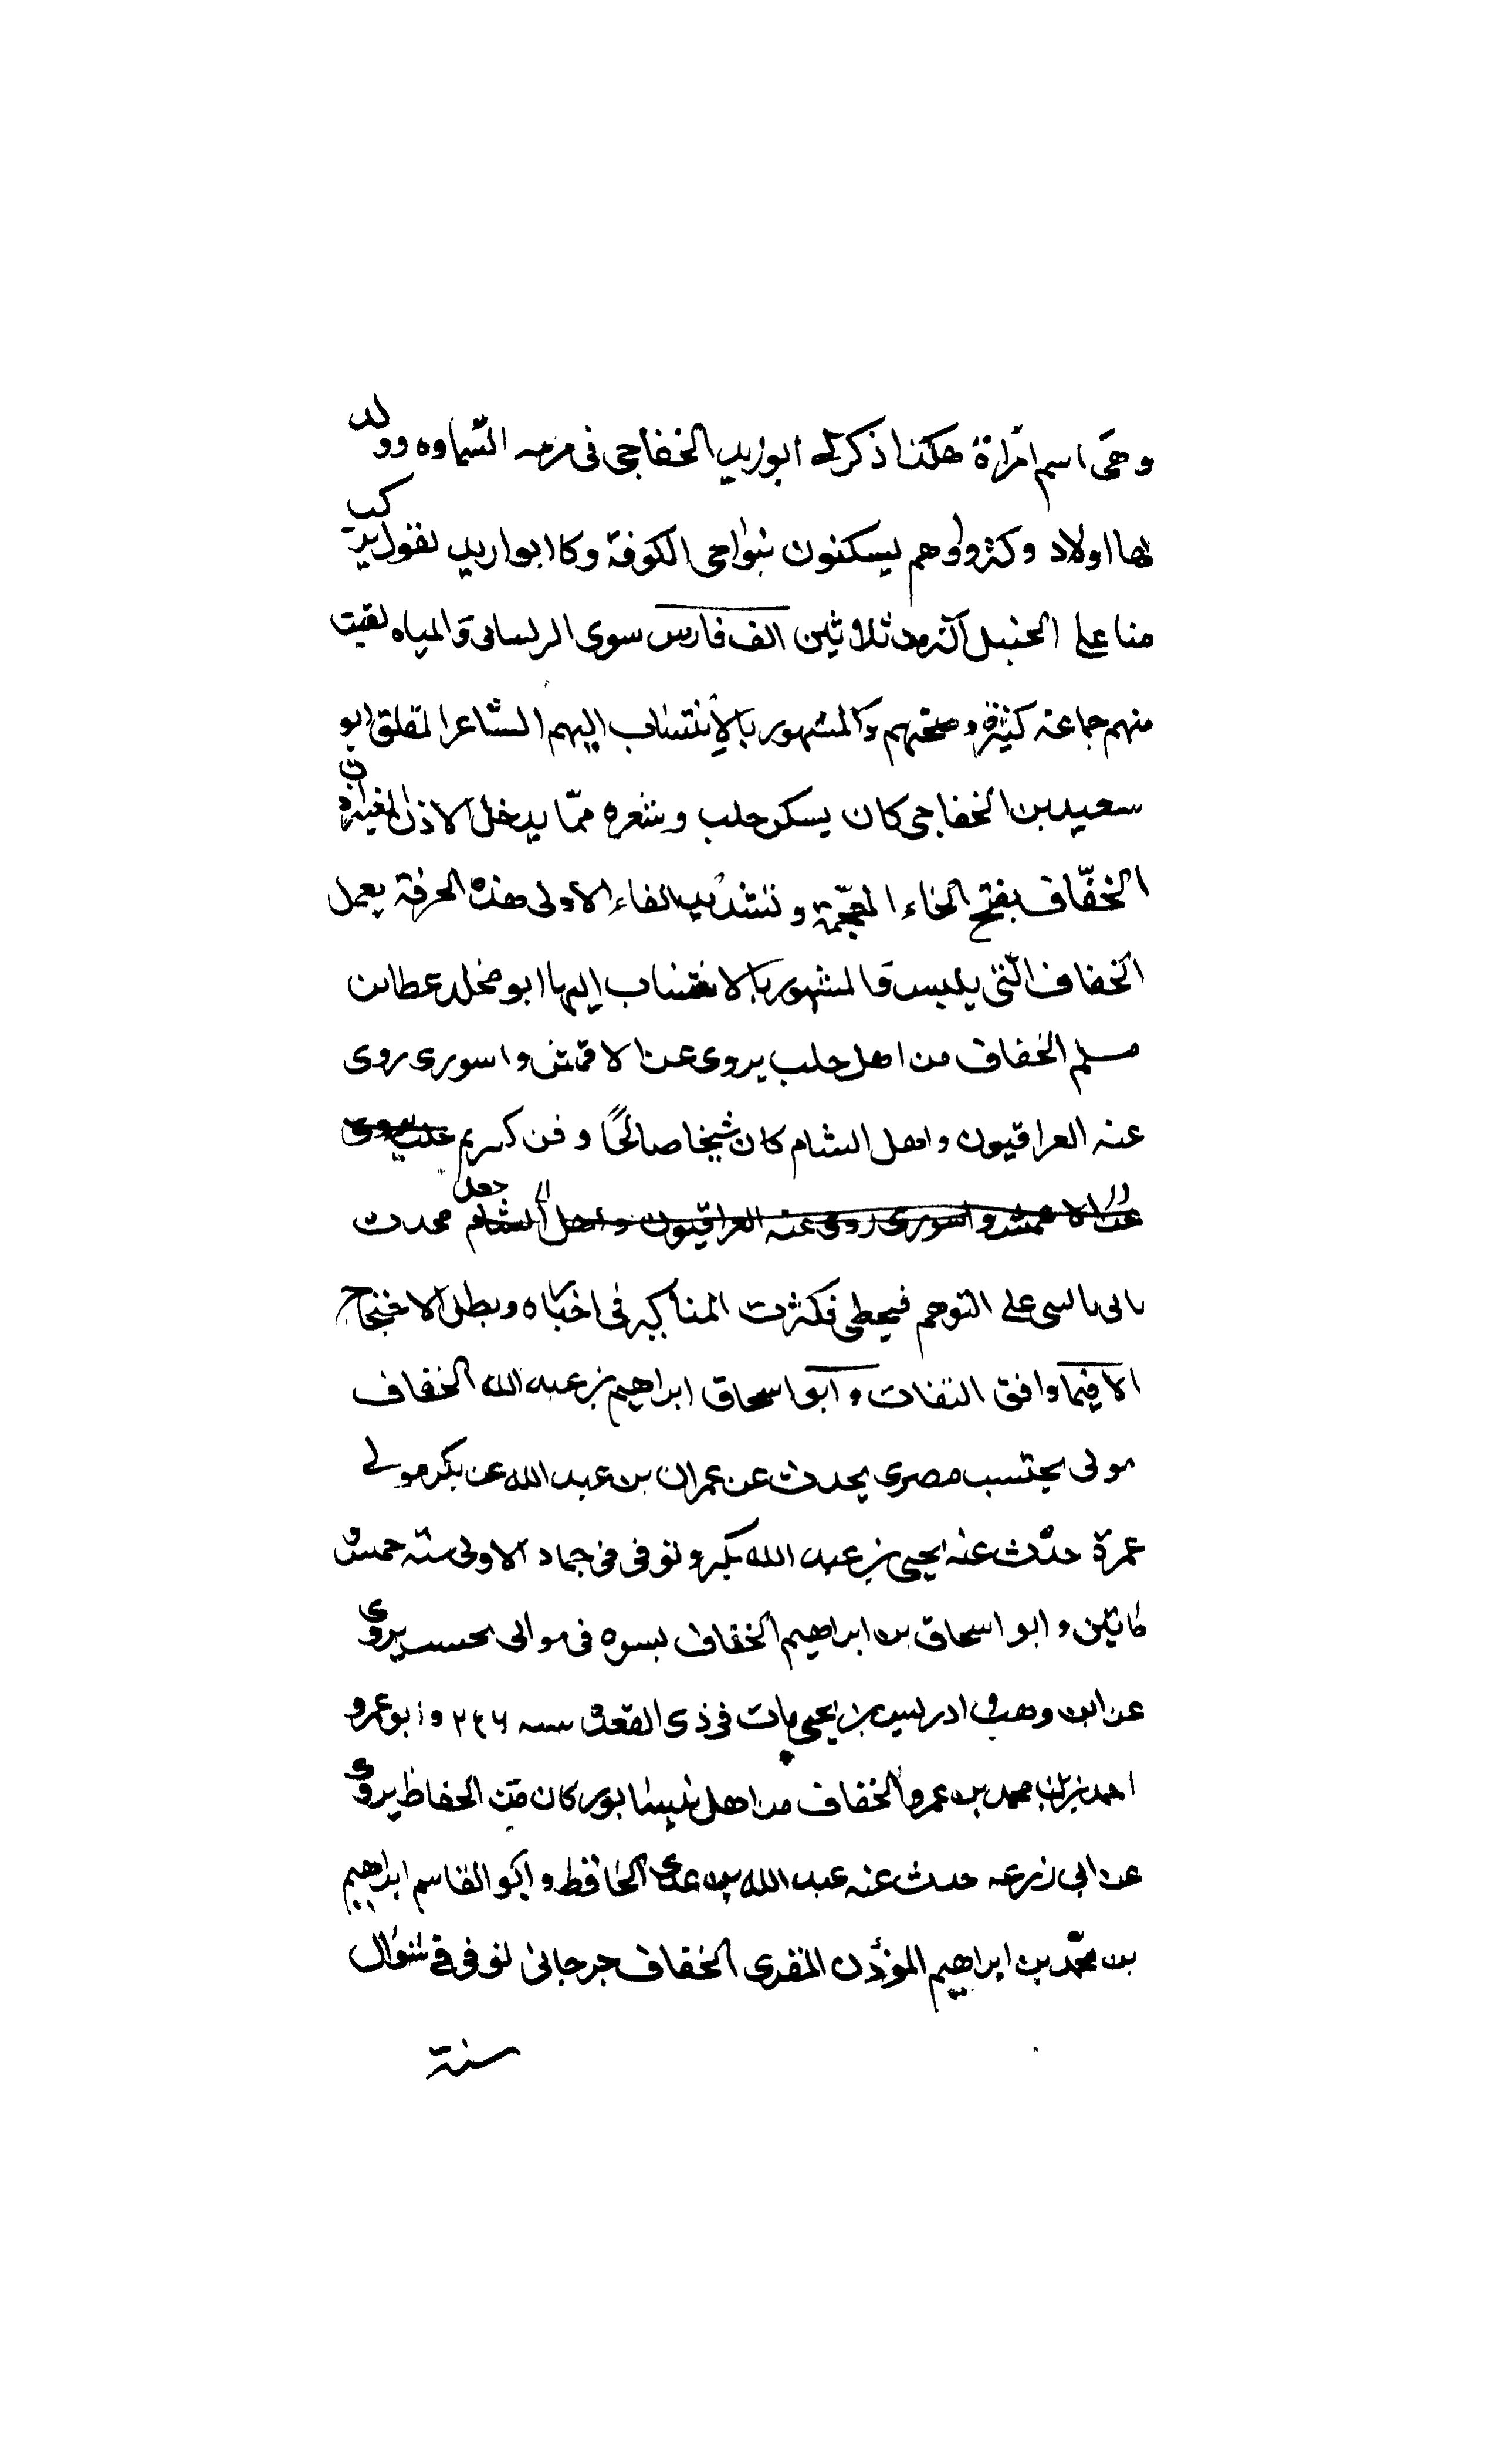 وهي اسم امرأة هكذا ذكر لي ابوزيد الخفاجي في مرمه السماوه وولد
لها اولاد وكثروا وهم يسكنون بنواحي الكوفة وكا ابو ازيد يقول يركب
منا على الخيل اكثر من ثلاثين الف فارس سوى الرىسامى والمياه لقيت
منهم جماعة كثيرة وصحبتهم والمشهور بالإنتساب اليهم الشاعر المفلق ابو
سعيد بن الخفاجي كان يسكن حلب وشعره ممّا يدخل الاذن بغير اذن
الخفّاف بفتح الخاء المعجمة وتشديد الفاء الاولى هذه الحرفة بعمل
الخفاف الّتي يلبس والمشهور بالانتساب اليها ابو مخلد عطا بن
مسلم الخفاف من اهل حلب يروى عن الاعمش واسورى روى
عنه العراقيون واهل الشام كان شيخا صالحًا
عن الاعمش واسورى روى عنه العراقيون واهل الشام جعل محدث
بالى بالسى على التوهم فيخطى فكثرت المناكير في اخباره وبطل الاحتجاج
الا فيما وافق الثقات وابو اسحاق ابراهيم بن عبد الله الخفاف
مولى يحتسب مصرى يحدث عن عمران بن عبد الله عن بكر مولى
عمرة حدّث عنه يحيى بن عبد الله بكير وتوفى فى جماد الاولى سنة خمس
ماتين وابو اسحاق بن ابراهيم الخفاف بسوه فى موالى بحسب يروى
عن ابن وهب وادريس بن يحيى مات فى ذى القعده سنه ٢٤٦ وابو عمرو
احمد بن محمد بن عمرو الخفاف من اهل نيسابور كان من الحفاظ يروى
عن ابى زرعه حدث عنه عبد الله بن عدى الحافظ وابو القاسم ابراهيم
بن محمّد بن ابراهيم المؤذن المقرى الخفاف جرجانى توفى في شوال
سنة